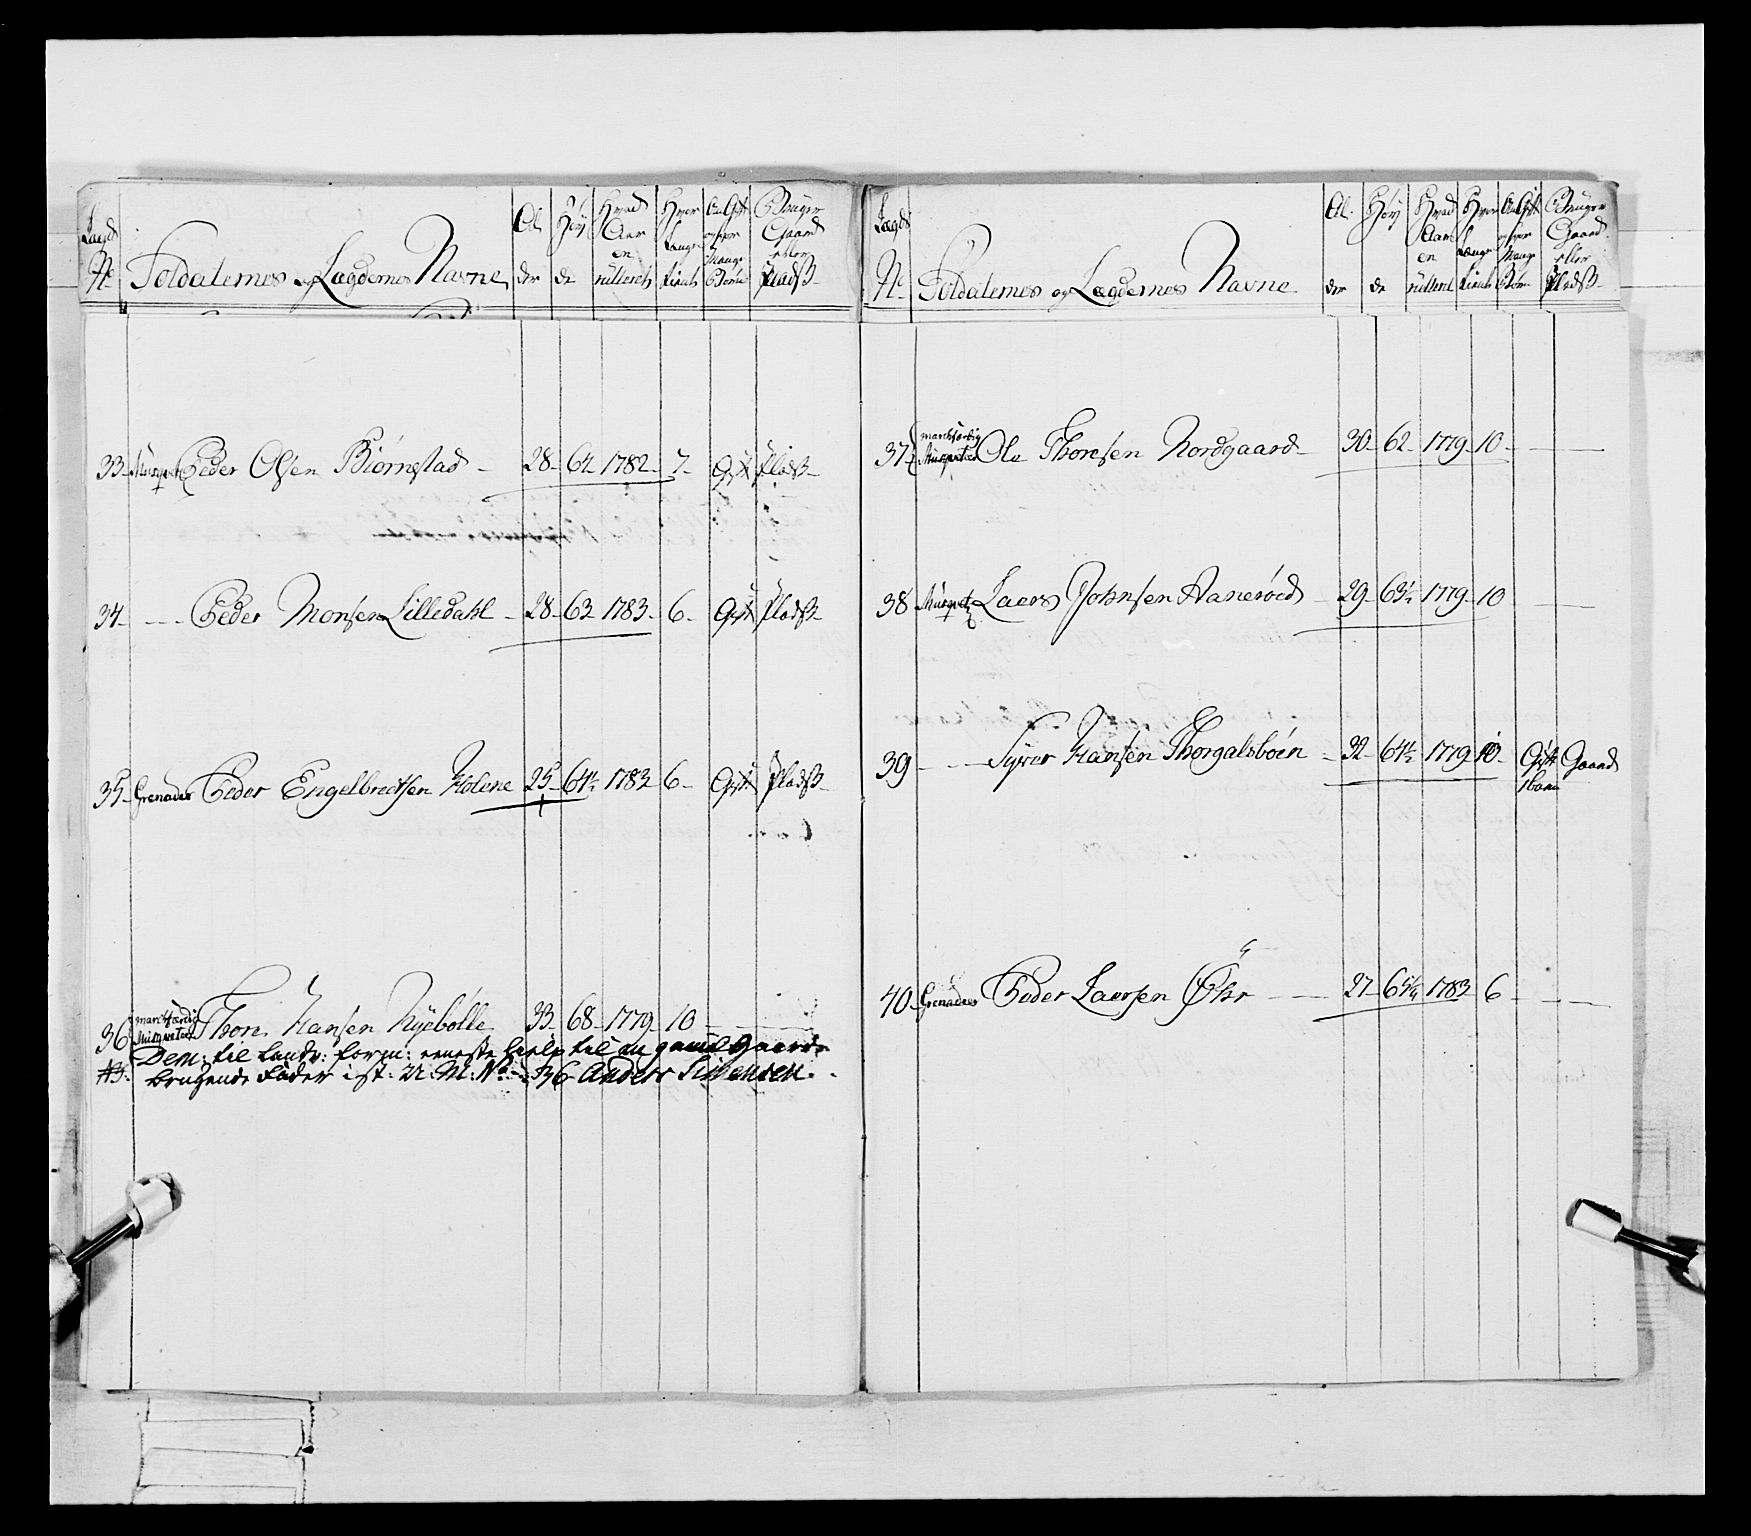 Lægds No
Soldaternes og Lægdernes Navne
Alder
Høyde
Hvad Aar en rulleret
Hvor Længe tient
Om Gift og hvor Mange Børn
Bruger Gaard eller Pladß
33 Musquet Peder Olsen Biörnstad 28 64 1782 7 Gift Pladß
34 Peder Monsen Lilledahl 28 63 1783 6 Gift Pladß
35 Grenader Peder Engelbrectsen Holene 25 64½ 1783 6 Gift Pladß
36 marchfærdig Musqueteer Thor Hansen Nyebölle 33 68 1779 10
Dem: til Landv: form: eeneste hielp til en gaml Gaard-
brugende Fader ist: N: M: No 36 Anders Siversen
Lægds No
Soldaternes og Lægdernes Navne
Alder
Høyde
Hvad Aar en rulleret
Hvor Længe tient
Om Gift og hvor Mange Børn
Bruger Gaard eller Pladß
37 marchfærdig Musqueteer Ole Thoresen Nordgaard 30 62 1779 10
38 Musquet Laers Johnsen Aaneröed 29 63½ 1779 10
39 Syver Hansen Thorgalsböen 32 64½ 1779 10 Gift Gaard
1 barn
40 Grenadeer Peder Laersen Öhr 27 65¼ 1783 6